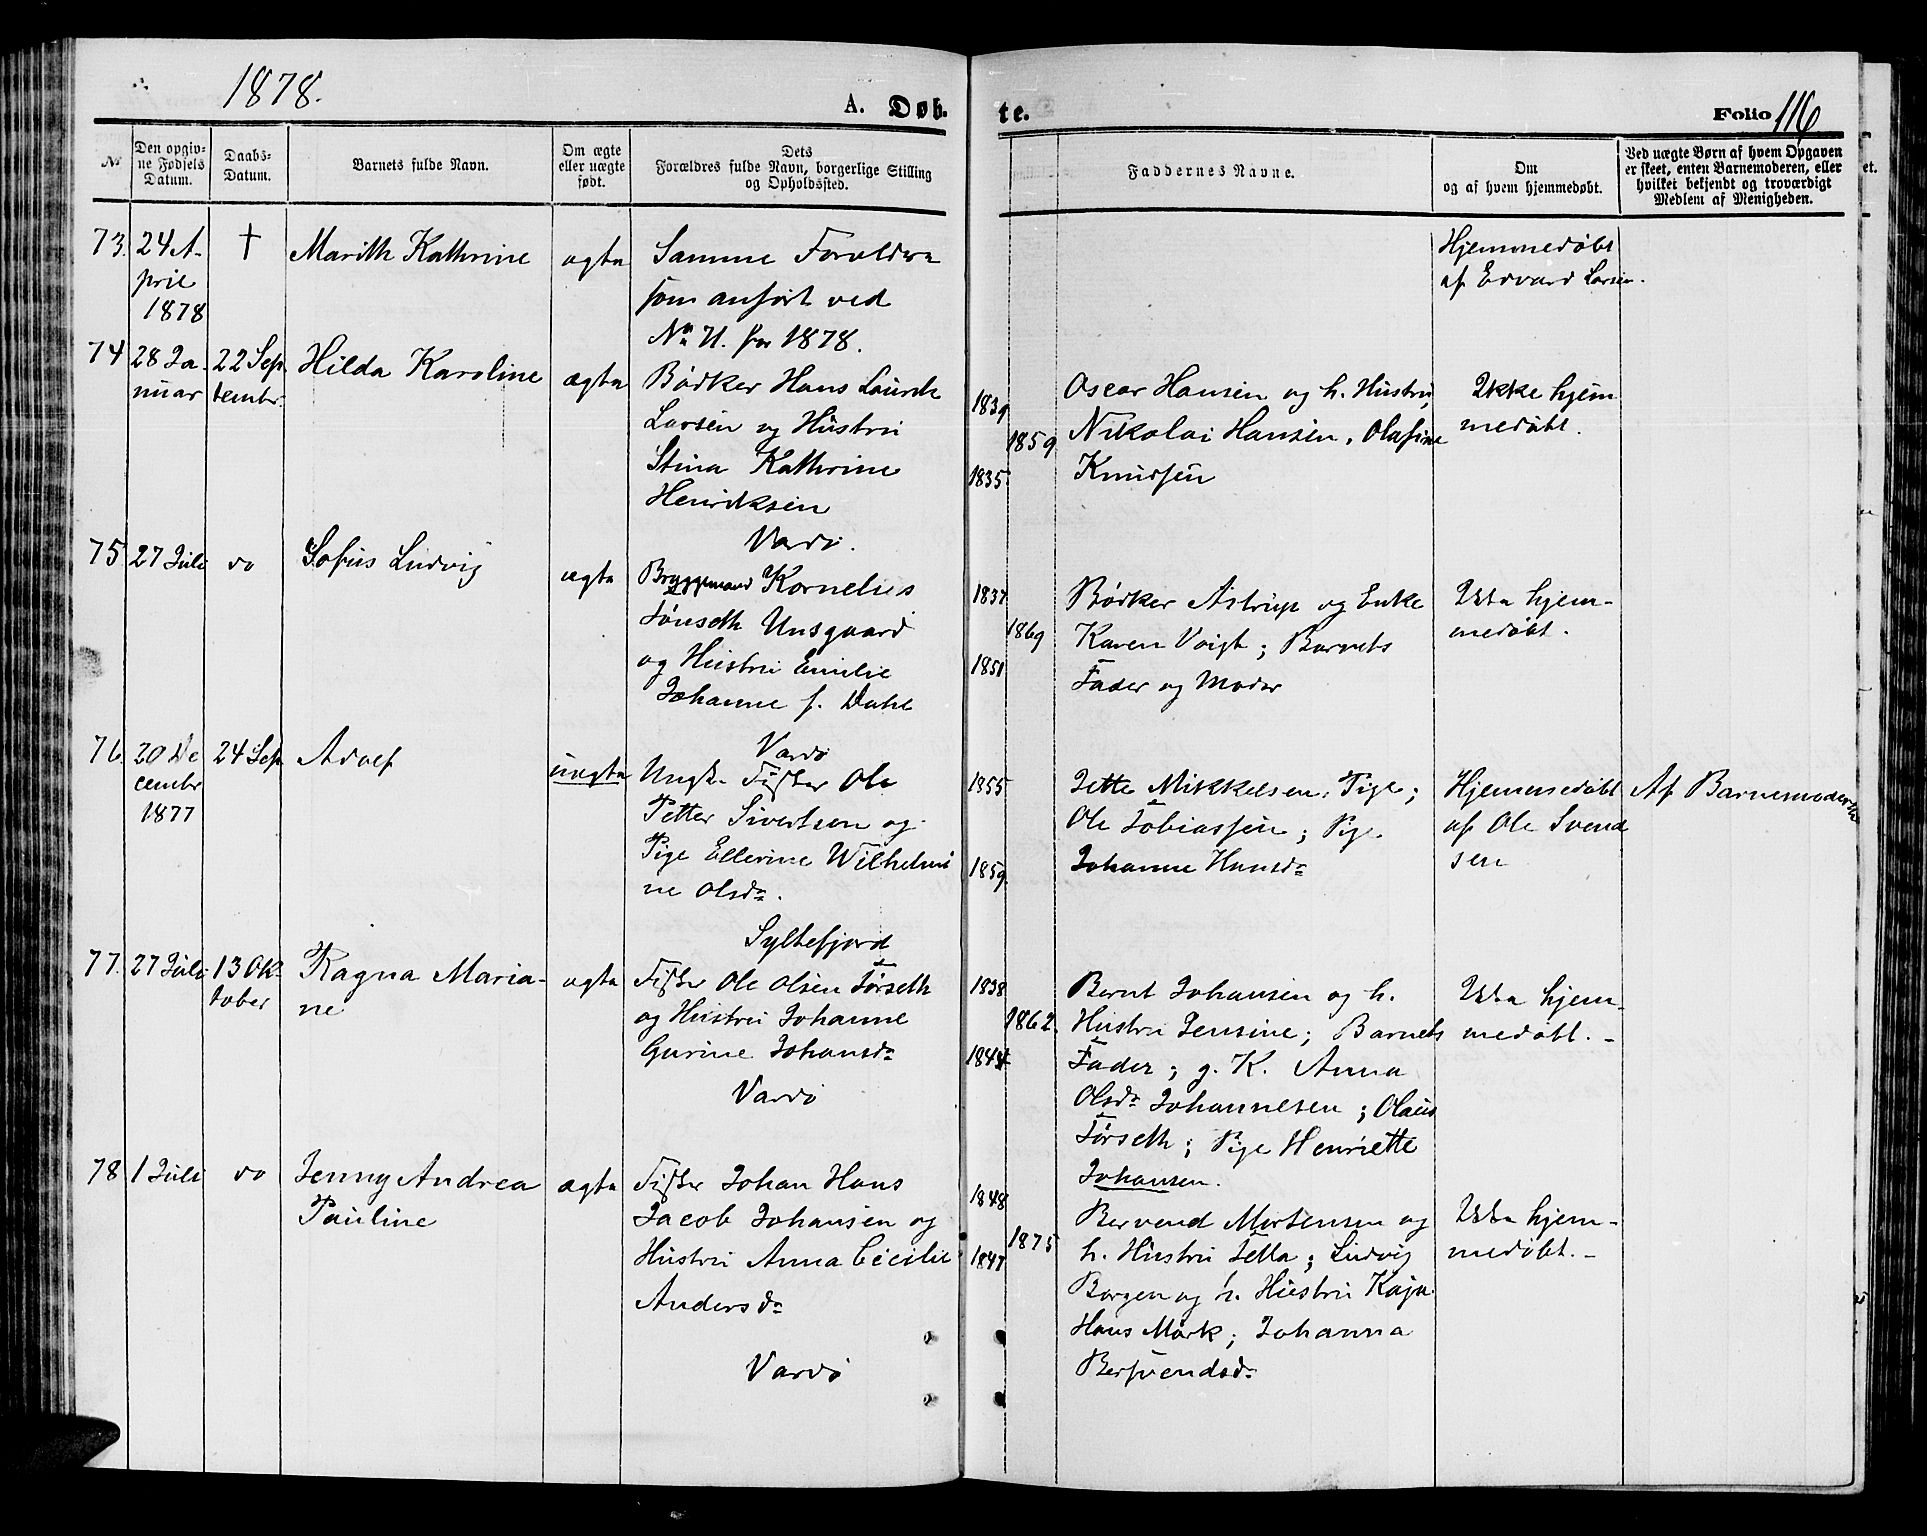 1878.
A. Døb-
te.
Folio 116
№
Den opgivne Fødsels Datum.
Daabs-Datum.
Barnets fulde Navn.
Om ægte eller uægte født.
Dets Forældres fulde Navn, borgerlige Stilling og Opholdssted.
Faddernes Navne.
Om og af hvem hjemmedøbt.
Ved uægte Børn af hvem Opgaven er skeet, enten Barnemoderen, eller hvilket bekjendt og troværdigt Medlem af Menigheden.
73. 24 A-
pril
1878
†
Marith Kathrine
ægte
Samme Forældre
som anført ved
No 71. for 1878.
Hjemmedøbt
af Edvard Larsen.
74 28 Ja-
nuar
22 Sep
tembr.
Hilda Karoline
ægte
Bødker Hans Laurits
Larsen og Hustru
Stina Kathrine
Henriksen
Vardö.
1839
1859
1835.
Oscar Hansen og h. Hustru,
Nikolai Hansen, Olafine
Knudsen
Ikke hjem
medøbt.
75 27 Juli
do
Sofus Ludvig
ægte
Bryggemand Kornelius
Tönseth Unsgaard
og Hustru Emilie
Johanne f. Dahl
Vardö
1837
1869
1851
Bödker Astrup og Enke
Karen Voigt; Barnets
Fader og Moder
Ikke hjem-
medøbt.
76. 20 De
cembr
1877
24 Sep
Adolf
uægte
Ungk. Fisker Ole
Petter Sivertsen og
Pige Ellerine Wilhelmi
ne Olsdr.
Syltefjord
1855
1859.
Jette Mikkelsen, Pige;
Ole Tobiassen; Pige
Johanne Hansdr
Hjemmedøbt
af Ole Svend
sen
Af Barnemoderen
77. 27 Juli
13 Ok-
tober
Ragna Maria-
ne
ægte
Fisker Ole Olsen Törseth
og Hustru Johanne
Gurine Johansdr
Vardö
1838
1862.
1844
Bernt Johansen og h.
Hustru Jensine; Barnets
Fader; g. K. Anna
Olsdr Johannesen; Olaus
Törseth; Pige Henriette
Johansen.
Ikke hjem-
medøbt. -
78 1 Juli
do
Jenny Andrea
Pauline
ægte
Fisker Johan Hans
Jacob Johansen og
Hustru Anna Cicilie
Andersdr
Vardö
1848
1875
1847
Bervend Mortensen og
h. Hustru Tella; Ludvig
Borgen og h. Hustru Kaja.
Hans Mörk; Johanna
Bersvendsdr
Ikke hjem-
medøbt. -